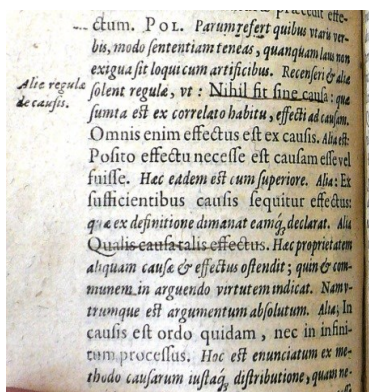 ctum. POL. Parum refert quibus vtaris ver-
bis, modo sententiam teneas, quanquam laus non
exigua sit loqui cum artificibus. Recenseri & aliæ
solent regulæ, vt: Nihil sit sine causa: quæ
Aliæ regulæ
de causis.
sumta est ex correlato habitu, effecti ad causam.
Omnis enim effectus est ex causis. Alia est:
Posito effectu necesse est causam esse vel
fuisse. Hæc eadem est cum superiore. Alia: Ex
sufficientibus causis sequitur effectus:
quæ ex definitione dimanat eamq́; declarat. Alia
Qualis causa talis effectus. Hæc proprietatem
aliquam causæ & effectus ostendit; quin & com-
munem in arguendo virtutem indicat. Nam v-
trumque est argumentum absolutum. Alia; In
causis est ordo quidam, nec in infini-
tum processus. Hoc est enunciatum ex me-
thodo causarum iustaq́; distributione, quam ne-